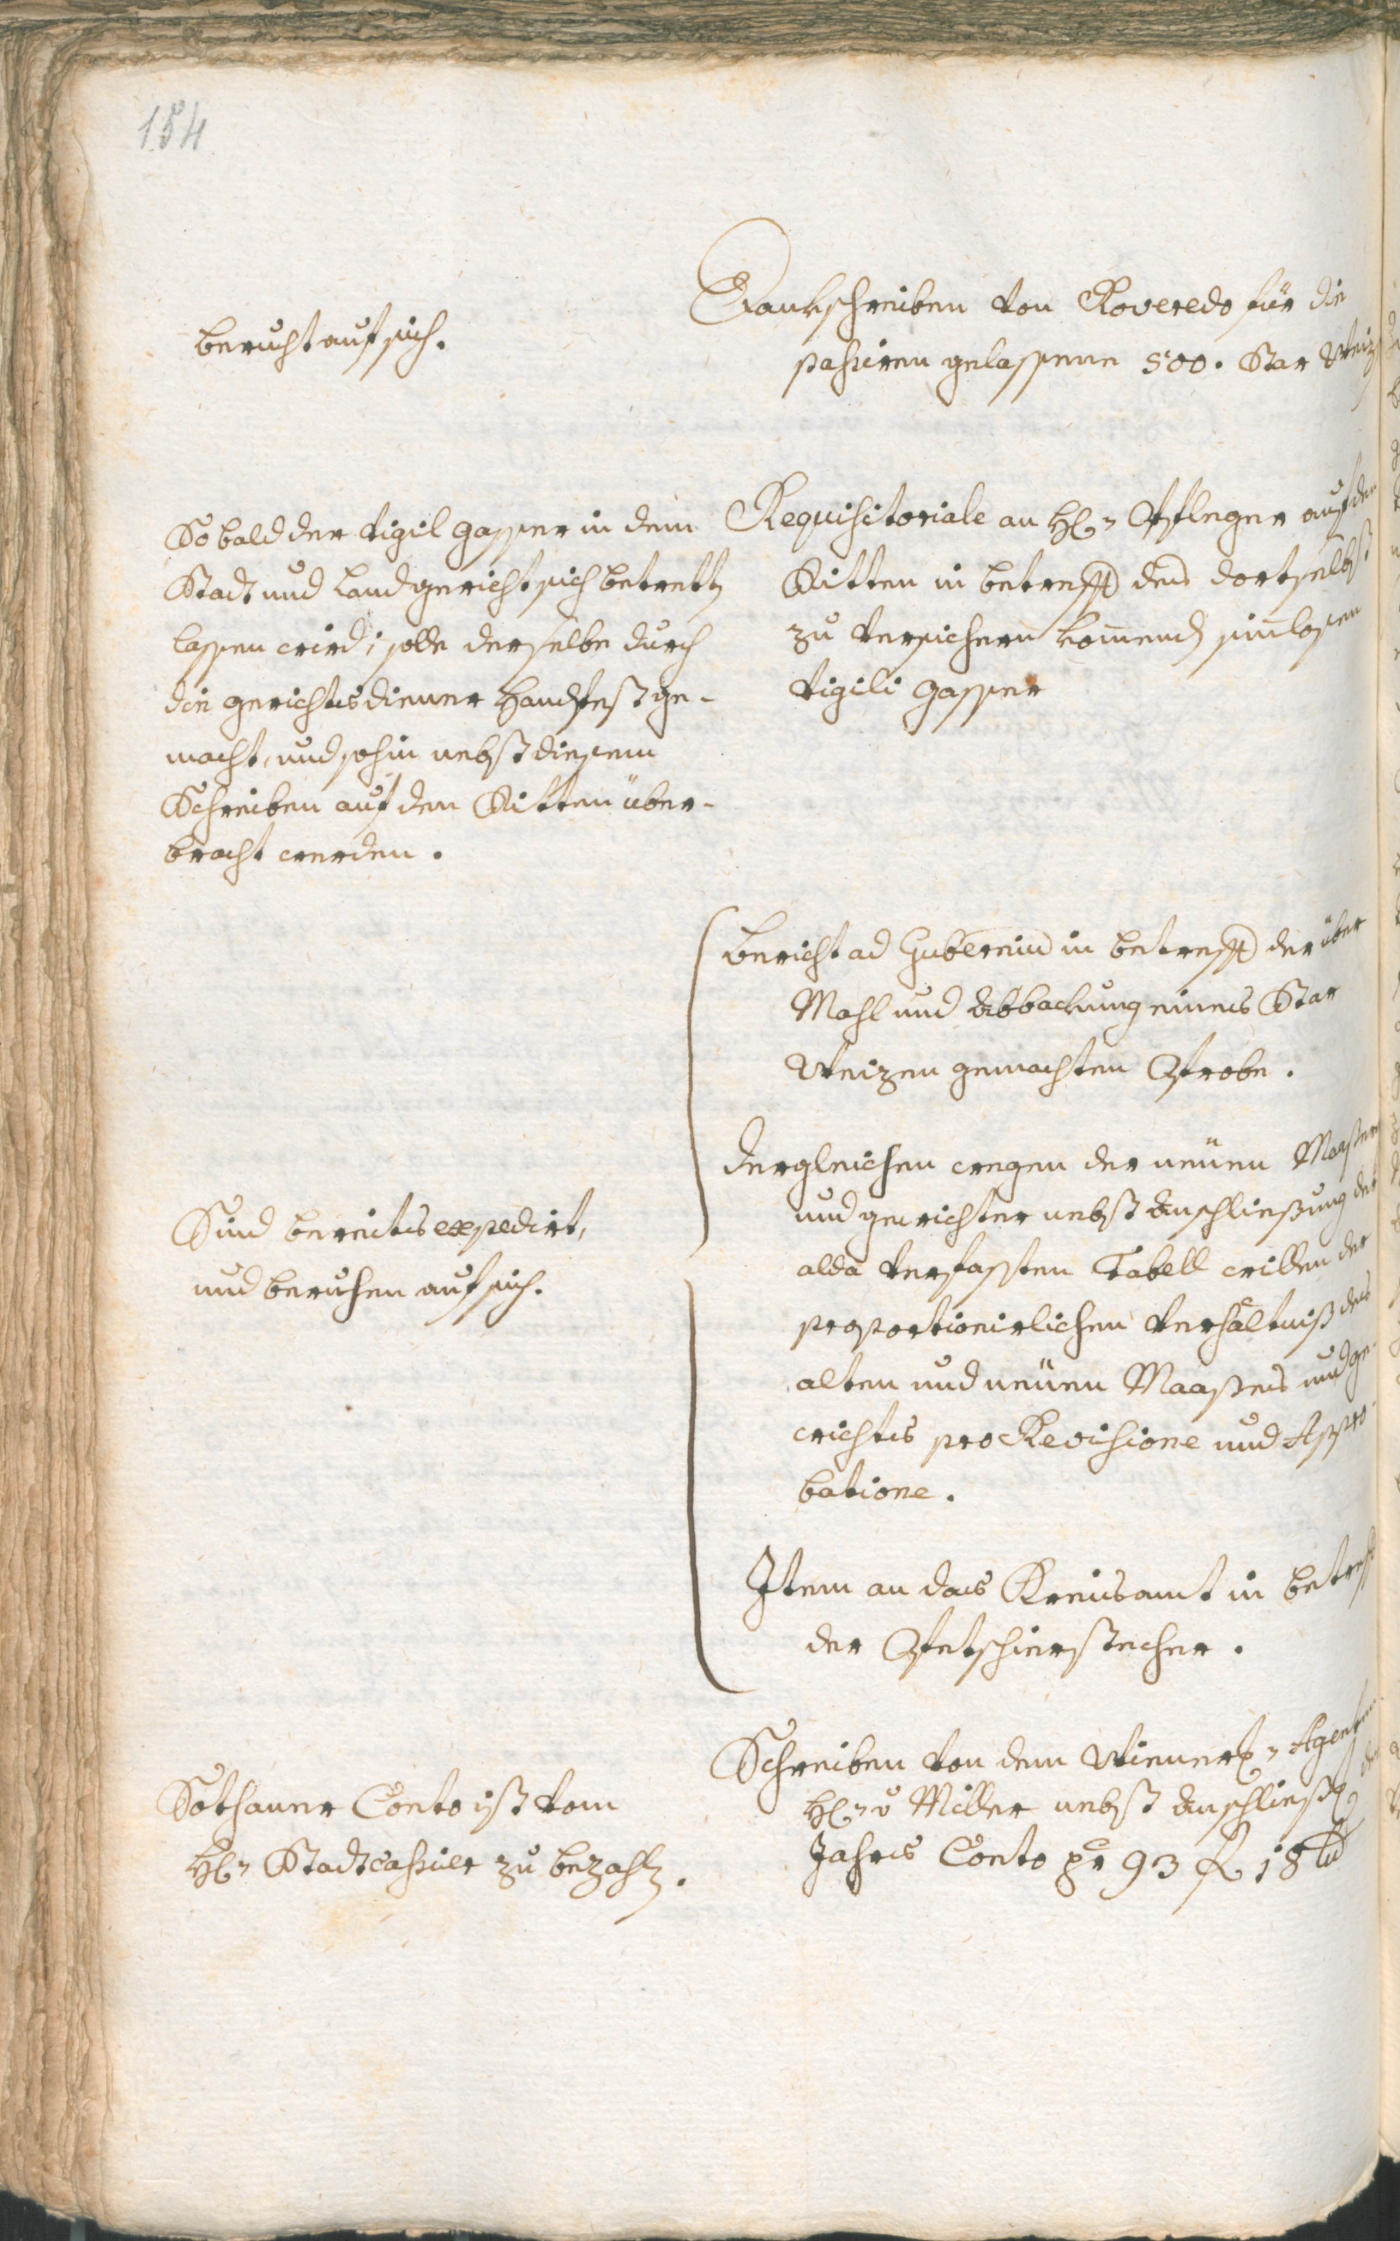 154
Dankschreiben von Roveredo für die
passiren gelassene 500. Star Weiz
beruht auf sich.
Requisitoriale an H: Pfleger auf den
Ritten in betreff des dortselbst
zu versichern kom̅enden sinnlosen
Vigili Gasser
So bald der Vigil Gasser in dem
Stadt und Landgericht sich betretten
lassen wird; solle derselbe durch
die gerichtsdiener Handfest ge-
macht, und sohin nebst diesem
Schreiben auf den Ritten über-
bracht werden.
Bericht ad Gubernium in betreff der über
Mahl und Abbachung eines Star
Weizen gemachten Probe.
Dergleichen wegen der neüen Maaßen
und gewichter nebst Anschließung der
alda verfassten Tabell willen der
proportionirlichen Verhältniß des
alten und neüen Maaßes und ge-
wichts pro Revisione und Appro-
batione.
Item an das Kreisamt in betreff
der Petschierstecher.
Sind bereits expedirt,
und beruhen auf sich.
Schreiben von dem Wiener: Agenten
H: v Miller nebst Anschließ: des
Jahrs Conto pr 93 f 18
Sothaner Conto ist vom
H: Stadtcassier zu bezahlen.